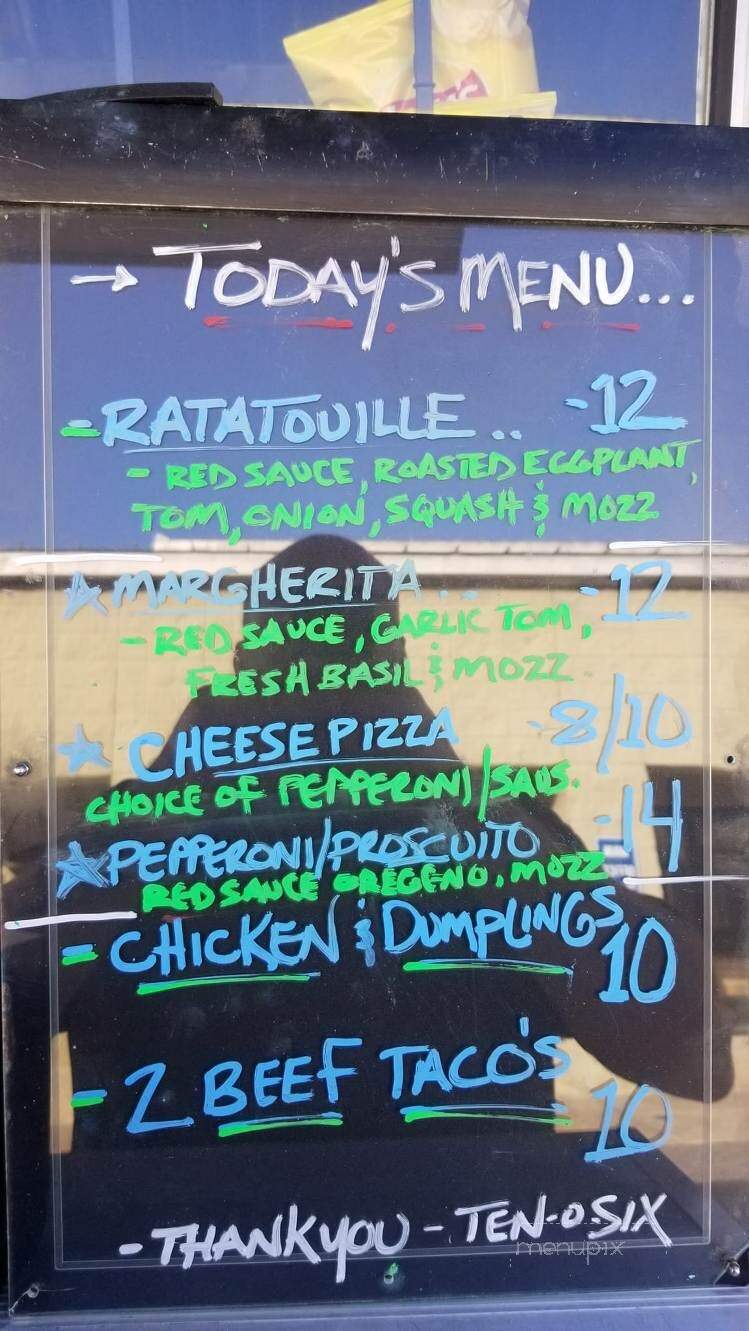 → TODAY'S MENU...
- RATATOUILLE .. -12
- RED SAUCE, ROASTED EGGPLANT,
TOM, ONION, SQUASH & MOZZ
☆ MARGHERITA .. -12
- RED SAUCE, GARLIC TOM,
FRESH BASIL & MOZZ
☆ CHEESE PIZZA -8/10
CHOICE OF PEPPERONI/SAUS.
☆ PEPPERONI/PROSCUITO -14
RED SAUCE OREGENO, MOZZ
- CHICKEN & DUMPLINGS 10
- 2 BEEF TACO'S 10
- THANK YOU - TEN-O-SIX
menupix